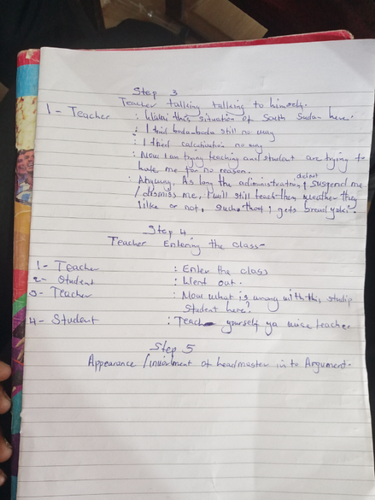 Step 3
Teacher talking talking to himself.
1- Teacher : Within this situation of South Sudan here.
: I tried boda-boda still no way
: I tried no way
: Now I am trying teaching and student are trying to
hate me for no reason.
didn't
: Anyway. As long the administration suspend me
/ dismiss me, I will still teach they weather they
like or not, gets
Step 4
Teacher Entering the class
1- Teacher : Enter the class
2- Student : Went out.
3- Teacher : Now what is wrong with this
Student here.
4- Student : Teach yourself ya teacher
Step 5
Appearance / of headmaster in to Argument.